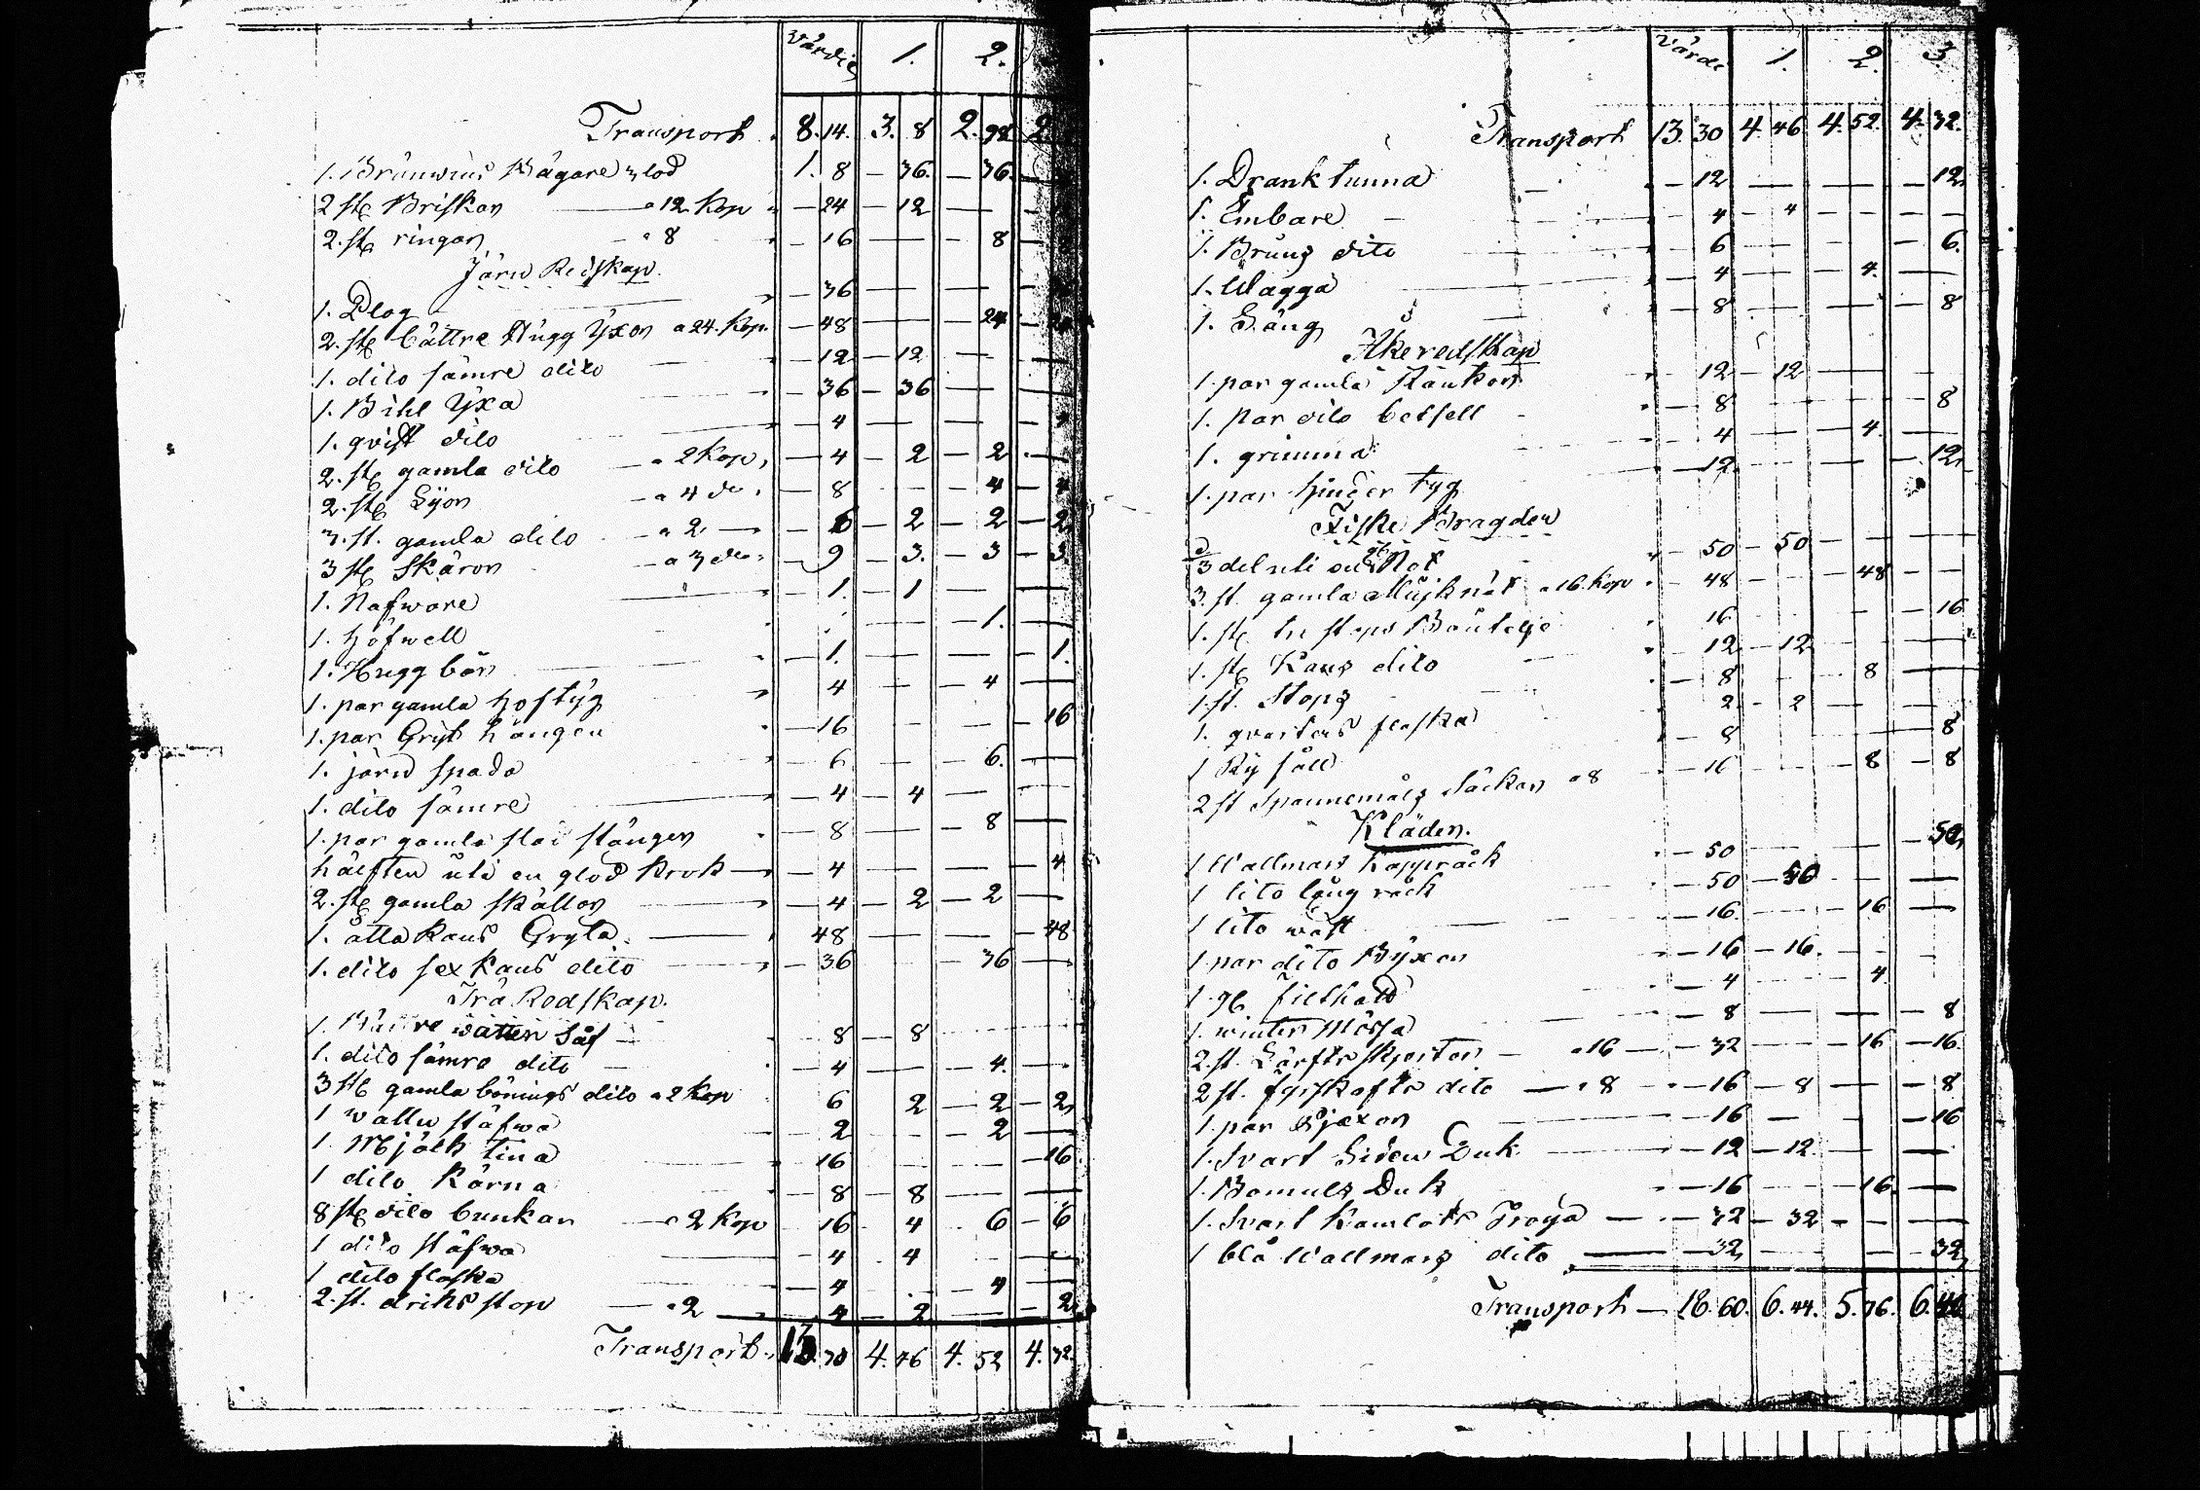 Värdie 1. 2.
Transport 8. 14. 3. 8 2. 98 2
1. Bränwins Bägare 3 lod 1. 8 — 36. — 36.
2 st Briskor — a 12 Kop — 24 — 12 — —
2. st ringar — a 8 — 16 — — 8
Järn Redskap.
1. Plog — 36 — —
2. st bättre Hugg Yxor a 24. Kop. — 48 — — 24 — 24
1. dito sämre dito — 12 — 12 — —
1. Bihl Yxa — 36 — 36 — —
1. qvist dito — 4 — — — 4
2. st gamla dito — a 2 Kop, — 4 — 2 — 2 —
2. st Lijor — a 4 do, — 8 — 4 — 4
3. st. gamla dito — a 2 — — 6 — 2 — 2 — 2
3 st Skäror — a 3 do — 9 — 3. — 3 — 3
1. Nafware — 1. — 1 — —
1. höfwell — 1. —
1. Hugg bön — 1. — — 1.
1. par gamla hoftÿg 4 — — 4 —
1. par Gryt hängen — 16 — — — 16
1. järn spada — 6 — 6. —
1. dito sämre — 4 — 4 — —
1. par gamla stänger — 8 — — 8 —
hälften uti en glod krok — 4 — — — 4
2. st gamla skällor — 4 — 2 — 2 —
1. åtta Kans Gryta — 48 — — — 48
1. dito sex Kans dito — 36 — 36 —
Trä Redskap.
1. Bättre watten Så 8 — 8
1. dito sämre dito — 4 — — 4. —
3 st gamla bönings dito a 2 Kop 6 2 — 2 — 2
1 wattu stäfwa — 2 — 2 —
1 Mjölk tina 16 — — 16
1 dito Kärna — 8 — 8 — —
8 st dito bunkar — a 2 Kop 16 4 6 — 6
1 dito stäfwa — 4 4 — —
1 dito flaska — 4 — 4 —
2. st. driks stop — a 2 — 4 — 2 — — 2
Transport 13. 30 4. 46 4. 52 4. 32.
Värde 1. 2. 3
Transport 13. 30 4. 46 4. 52. 4. 32.
1. Drank tunna — 12 — — — 12
1. Embare — 4 — 4 — — —
1. Bruns dito — 6 — — — 6.
1. Wagga — 4 — — 4. —
1. Säng — 8 — — — 8
Åkeredskap
1. par gamla Rankor — 12 — 12 —
1. par dito betsell — 8 — — 8
1. grimma — 4 — — 4. —
1. par hinder tyg — 12 — — — 12
Fiske Bragder
3 del uti en Not — 50 — 50 — —
3. st. gamla Mujknät a 16. Kop — 48 — — 48 — —
1. st tu stops Boutelje 16 — — 16
1. st Kans dito — 12 — 12 —
1. st. Stops — 8 — 8 —
1. qvarters flaska 2 — 2 — —
1 Rÿ såll — 8 — — 8
2 st Spannemåls Säckar a 8 — 16 — — 8 — 8
Kläder.
1 Wallmars Kapprock — 50 — — — 50
1 dito lång rock — 50 — 50 — —
1 dito wäst — 16. — — 16 —
1 par dito Byxor — 16 — 16. — —
1 filthatt — 4 — — 4.
1. winter Mössa — 8 — — — 8
2. st. Lärfts skjortor — a 16 — — 32 — 16 — 16.
2 st. fyrskafts dito — a 8 — 16 — 8 — — 8
1 par — 16 — — — 16
1. Svart Siden Duk — 12 — 12. — —
1. Bomuls Duk — 16 — — 16. —
1. Svart Kamlotts Tröja — — 32 — 32 — — —
1 blå Wallmars dito — 32, — — — 32,
Transport — 18. 60. 6. 44. 5. 76. 6.